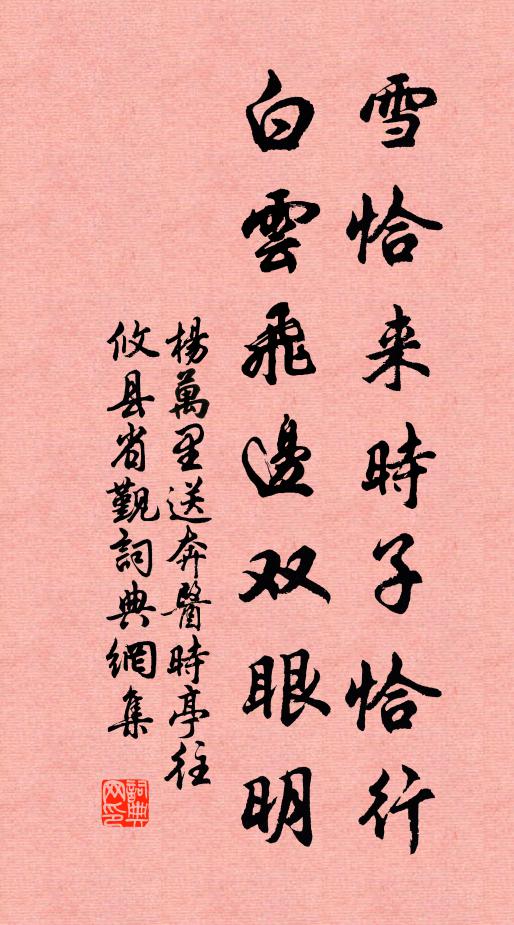 雪恰来時子恰行
白雲飛邊双眼明
楊萬里送奔醫時亭往
攸县省觐詞典網集
詞典网印